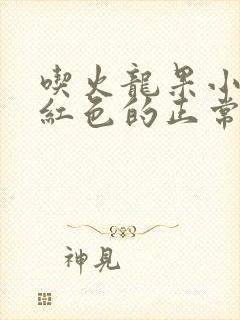 喫火龍果小
紅色的正常
神見